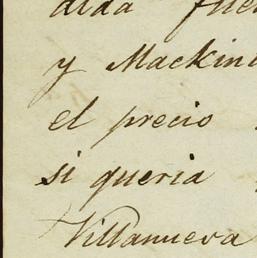 dida
y Mackin
el precio
si queria
Villanueva